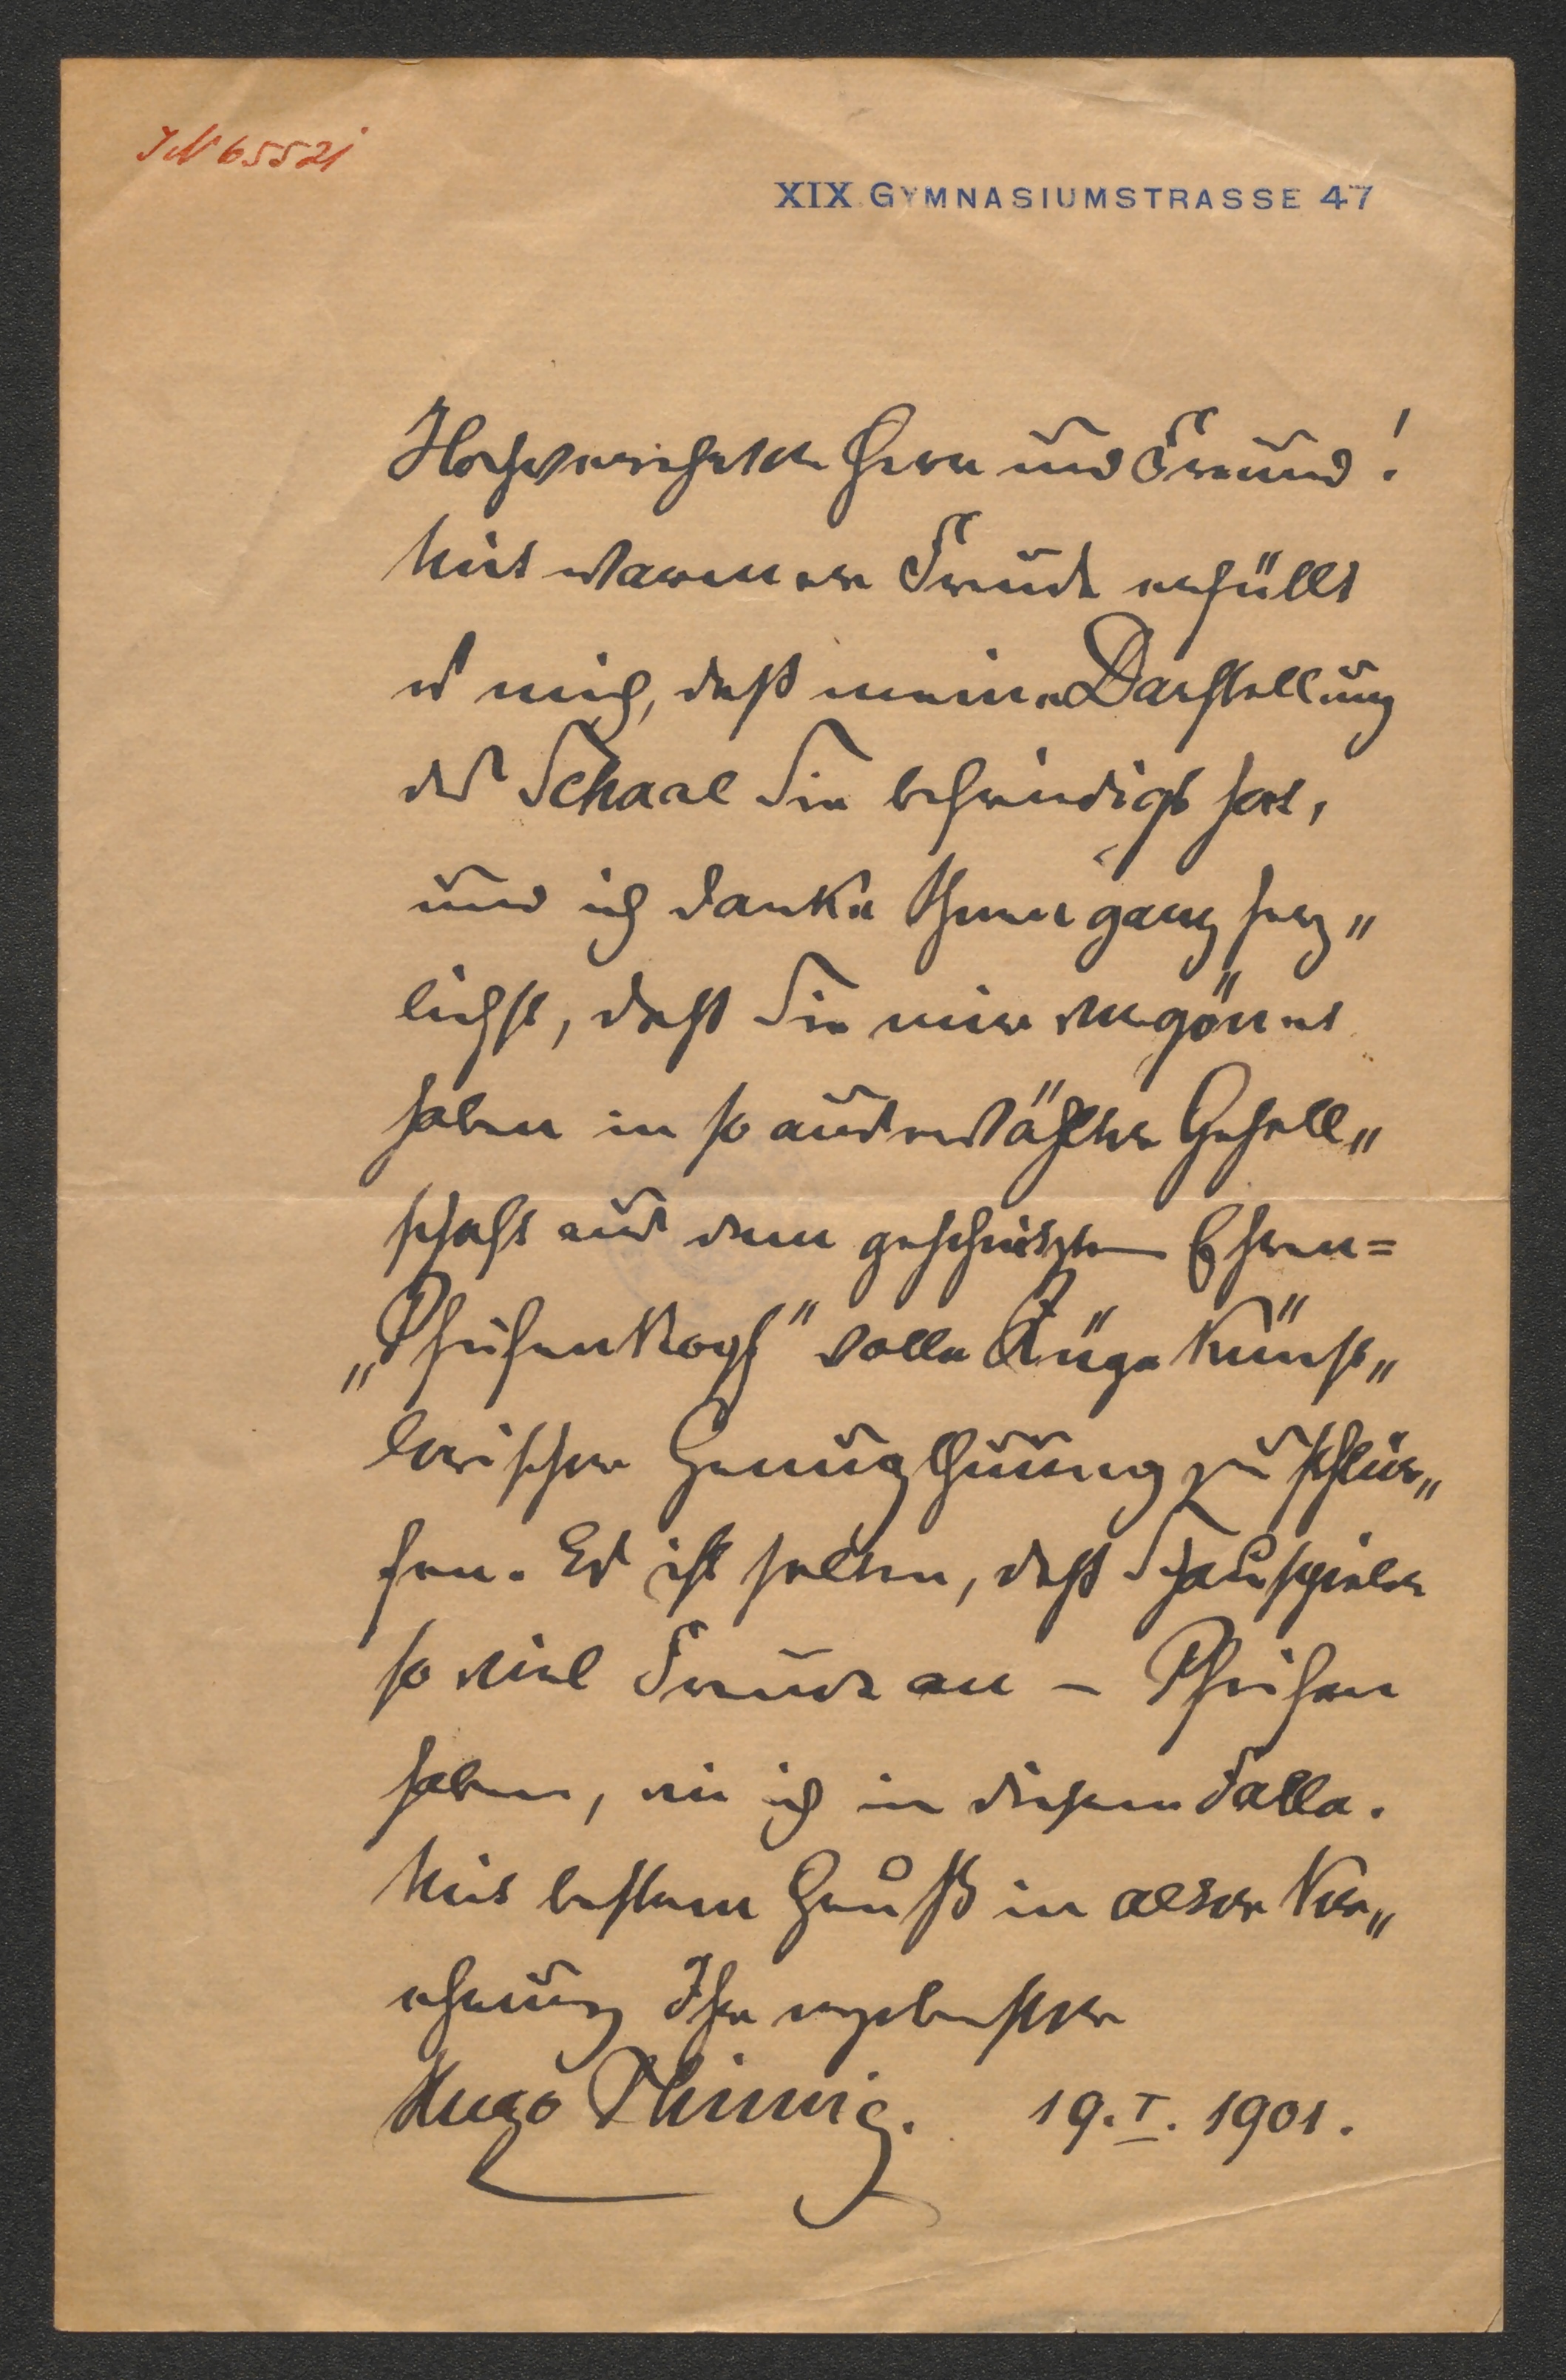 IN 65521
XIX. GYMNASIUMSTRASSE 47
Hochverehrter Herr und Freund!
Mit warmer Freude erfüllt
es mich, daß meine Darstellung
des Schaal Sie befriedigt hat,
und ich danke Ihnen ganz herz„
lichst, daß Sie mir vergönnt
haben in so auserwählter Gesell„
schaft aus dem geschnitzten Ehren=
„Pfeifenkopf“ volle Züge künst„
lerischer Genugthuung zu schlür„
fen. Es ist selten, daß Schauspieler
so viel Freude an – Pfeifen
haben, wie ich in diesem Falle.
Mit bestem Gruß in alter Ver„
ehrung Ihr ergebenster
Hugo Thimig. 19.I.1901.